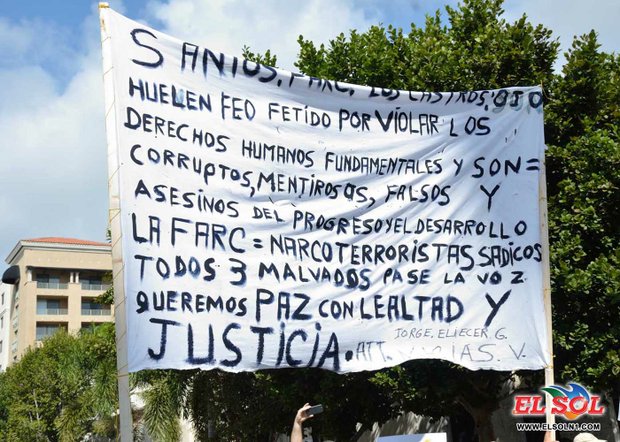 SANTOS, FARC, LOS CASTROS, OJO
HUELEN FEO FETIDO POR VIOLAR LOS
DERECHOS HUMANOS FUNDAMENTALES Y SON=
CORRUPTOS, MENTIROSAS, FALSOS Y
ASESINOS DEL PROGRESO Y EL DESARROLLO
LA FARC = NARCOTERRORISTAS SADICOS
TODOS 3 MALVADOS PASE LA VOZ
QUEREMOS PAZ CON LEALTAD Y
JUSTICIA. ATT.
JORGE. ELIECER G.
V.
EL SOL
WWW.ELSOLN1.COM